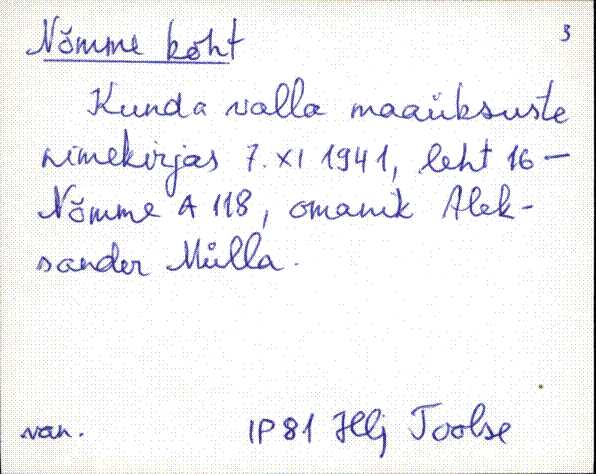 Nõmme koht 3
Kunda valla maaüksuste
nimekirjas 7.XI 1941, leht 16 –
Nõmme A 118, omanik Alek-
sander Mülla.
van. IP 81 Hlj Toolse